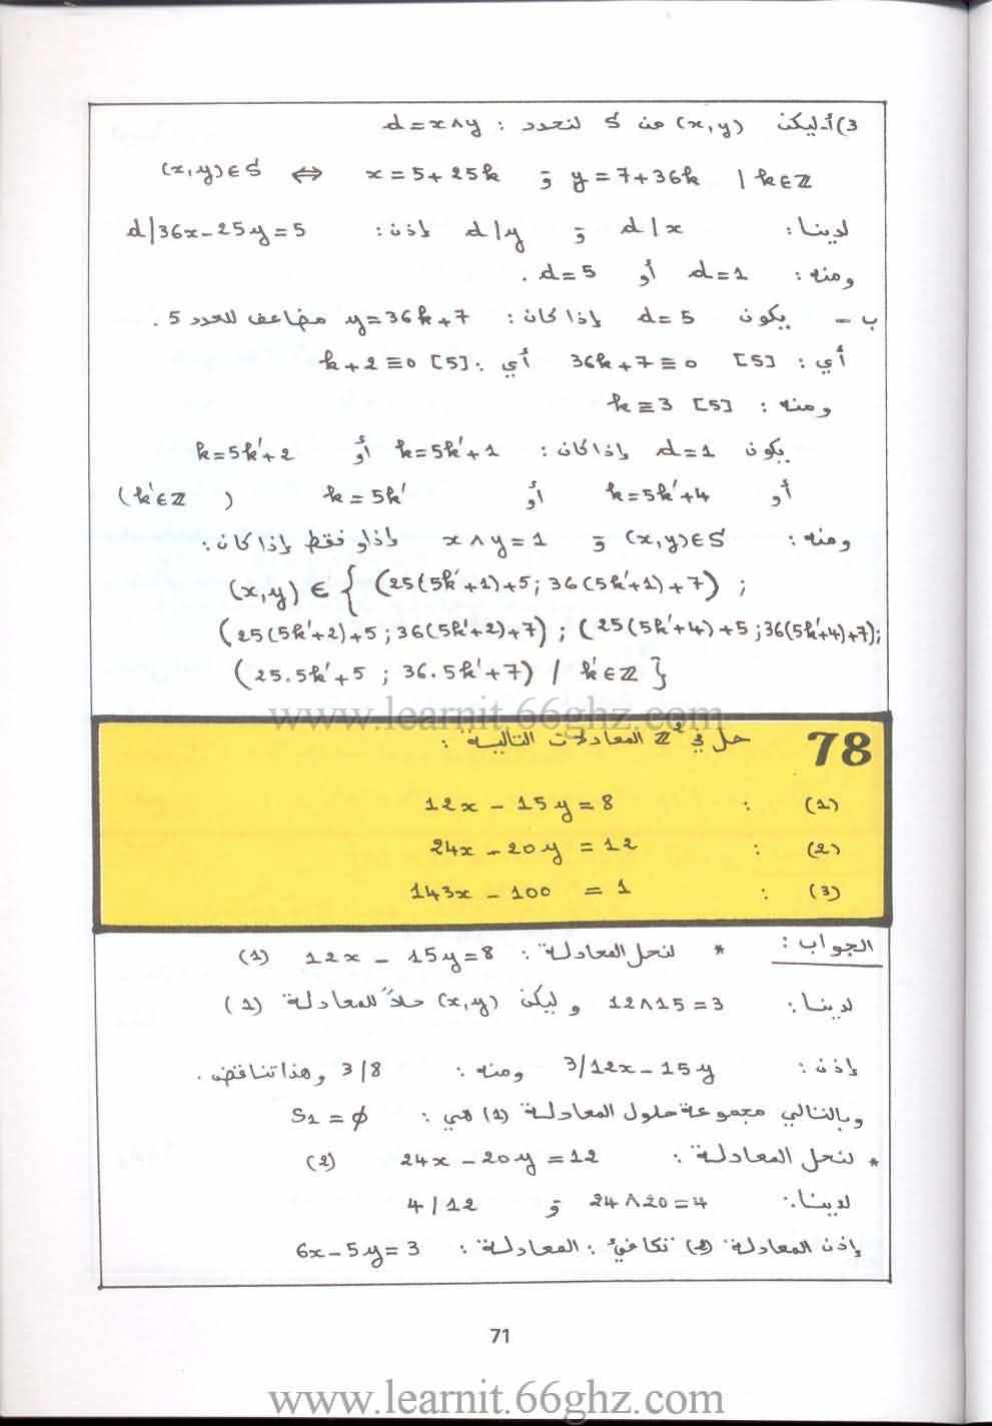 3)أ- ليكن (x,y) من S لنحدد : d=x∧y
(x,y)∈S ⇔ x=5+25k و y=7+36k | k∈ℤ
لدينا: d|x و d|y إذن: d|36x-25y=5
ومنه: d=1 أو d=5 .
ب - يكون d=5 إذا كان: y=36k+7 مضاعف للعدد 5.
أي: 36k+7≡0 [5] أي: k+2≡0 [5].
ومنه: k≡3 [5]
يكون d=1 إذا كان: k=5k'+1 أو k=5k'+2
أو k=5k'+4 أو k=5k' (k'∈ℤ)
ومنه: (x,y)∈S و x∧y=1 إذا وفقط إذا كان:
(x,y) ∈ { (25(5k'+1)+5; 36(5k'+1)+7) ;
(25(5k'+2)+5; 36(5k'+2)+7) ; (25(5k'+4)+5; 36(5k'+4)+7);
(25.5k'+5 ; 36.5k'+7) / k'∈ℤ }
www.learnit.66ghz.com
78 حل في ℤ² المعادلات التالية :
(1) : 12x - 15y = 8
(2) : 24x - 20y = 12
(3) : 143x - 100 = 1
الجواب : * لنحل المعادلة : 12x - 15y = 8 (1)
لدينا: 12∧15=3 و ليكن (x,y) حلاً للمعادلة (1)
إذن: 3/12x-15y ومنه: 3/8 وهذا تناقض.
وبالتالي مجموعة حلول المعادلة (1) هي : S1 = ∅
* لنحل المعادلة : 24x - 20y = 12 (2)
لدينا: 24∧20=4 و 4/12
إذن المعادلة (2) تكافئ : المعادلة : 6x-5y=3
71
www.learnit.66ghz.com